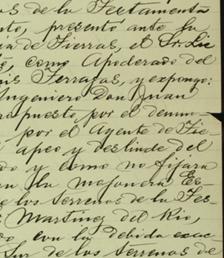 as de la Testamenta
sto, presento ante la
ia de Tierras, el Sr. Lic
es, como Apoderado del
is Terrazas, y expongo:
Ingeniero Don Juan
rapuesto por el denun
, por el Agente de Tie
apeo y deslinde del
do y como no fijara
en la mojonera Es
e los terrenos de la Tes
Martinez del Rio,
do con la debida exac
Sur de los terrenos de